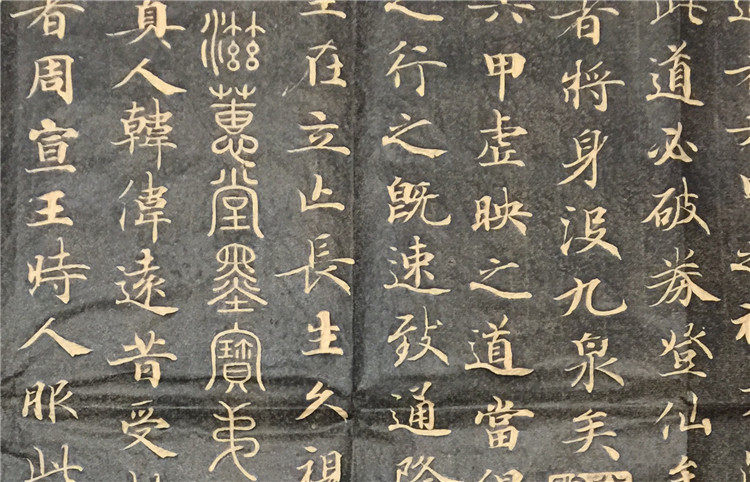 此道必破券登仙
者將身沒九泉矣
六甲虛映之道當得
之行之既速致通降
在立亡長生久視
滋蕙堂墨寶弟
真人韓偉遠昔受此
者周宣王時人服此